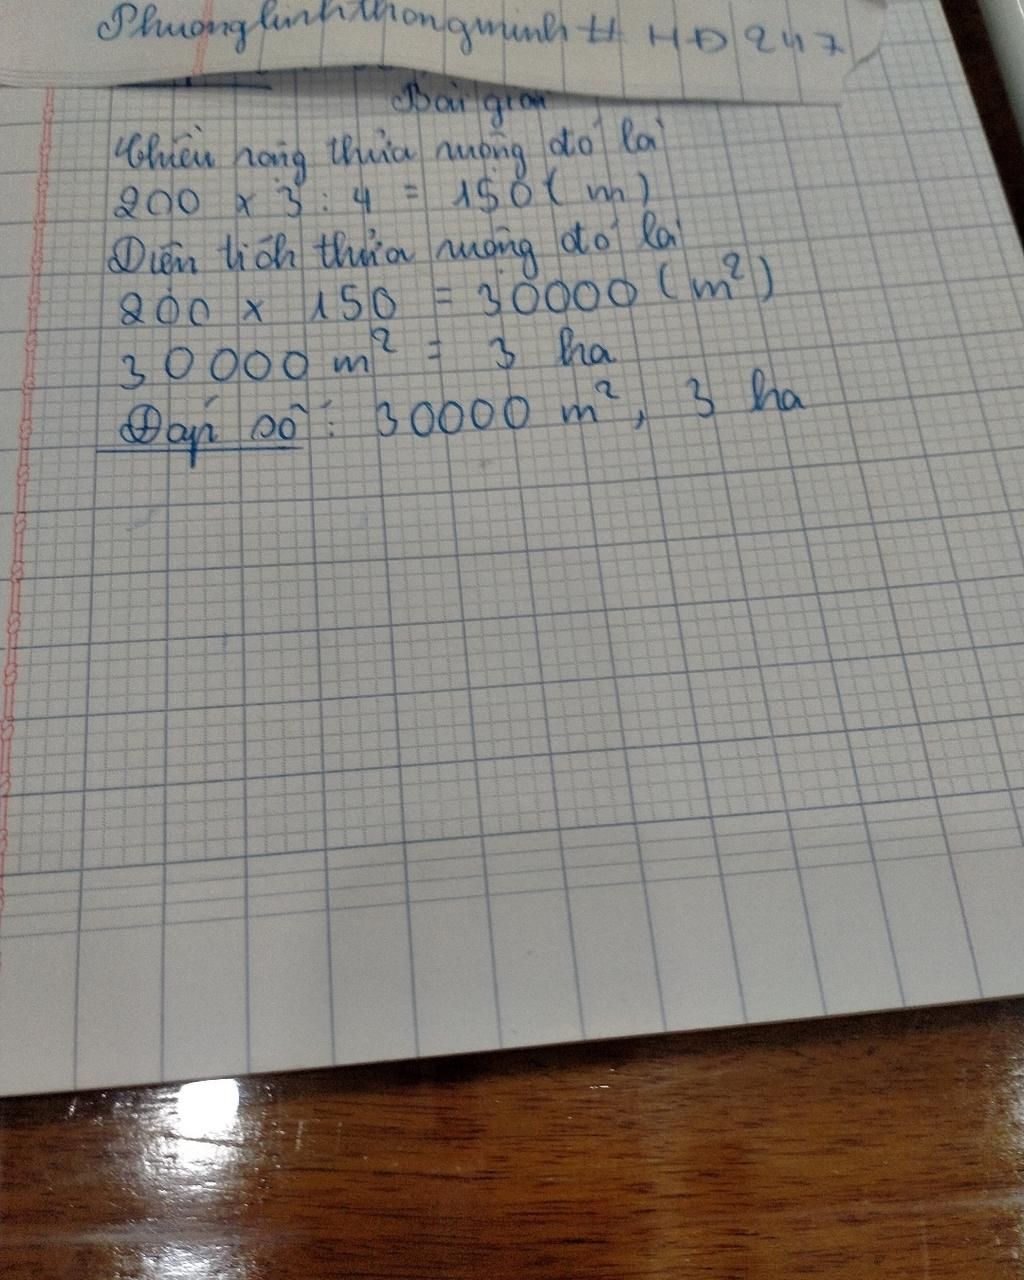 Phuonglinhthongminh # HD 247
Bài giải
Chiều rộng thửa ruộng đó là
200 x 3 : 4 = 150 ( m )
Diện tích thửa ruộng đó là
200 x 150 = 30000 ( m² )
30000 m² = 3 ha
Đáp số : 30000 m², 3 ha